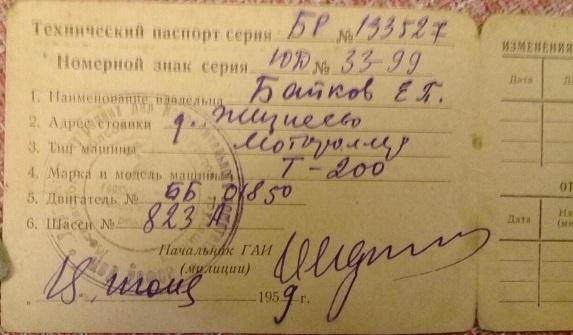 Технический паспорт серия БР № 133527
Номерной знак серия ЮД № 33-99
1. Наименование владельца Байков Е.П.
2. Адрес стоянки д.
3. Тип машины Мотороллер
4. Марка и модель машины Т-200
5. Двигатель № ББ 01850
6. Шасси № 823 А
Начальник ГАИ
(милиции)
"18" июня 1959 г.
ИЗМЕНЕНИЯ
Дата
Дата